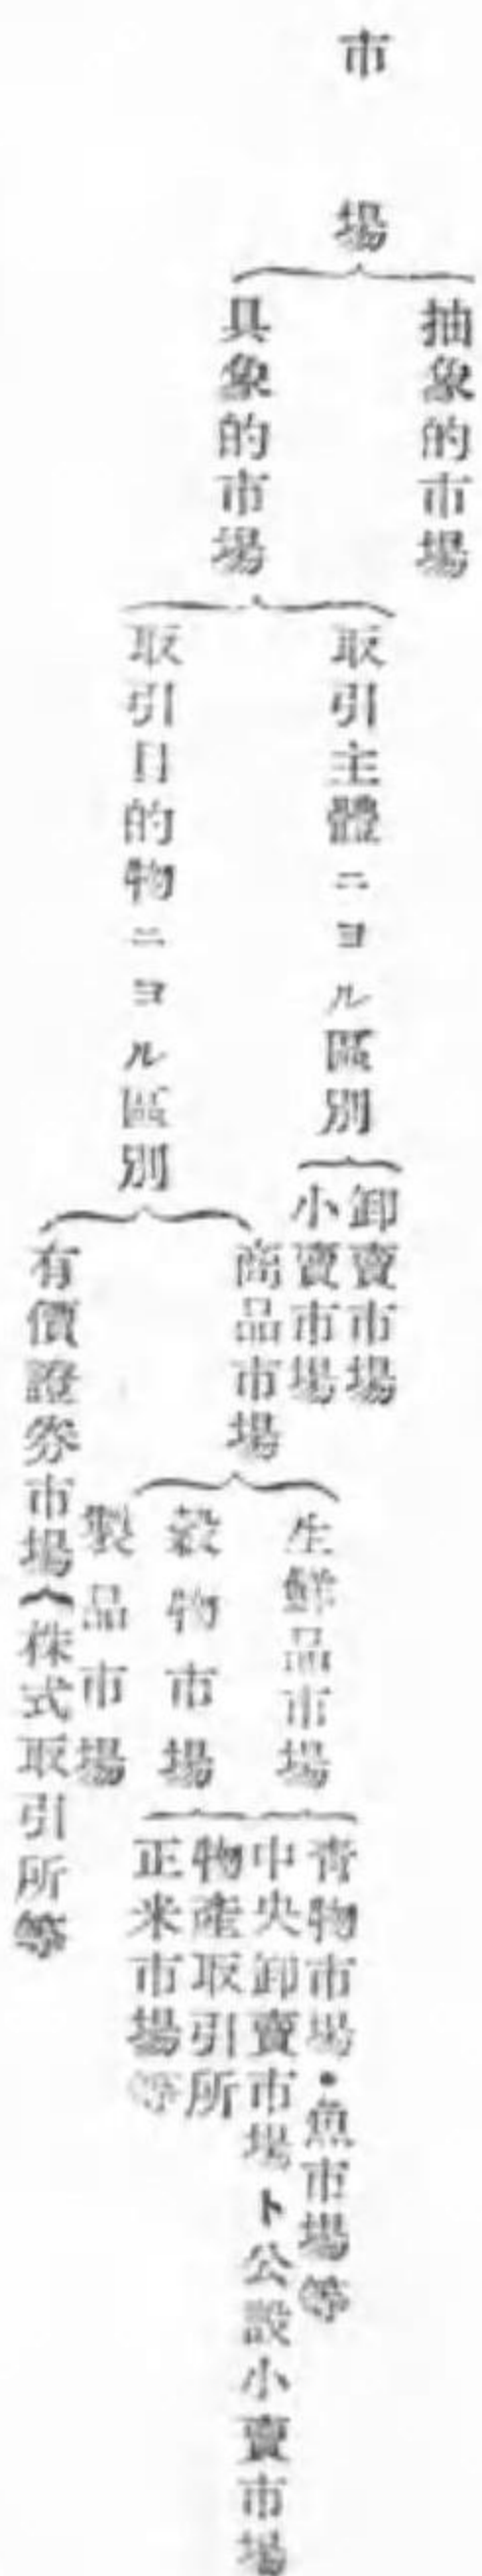 市場
抽象的市場
具象的市場
取引主體ニヨル區別
卸賣市場
小賣市場
取引目的物ニヨル區別
商品市場
生鮮品市場
青物市場・魚市場等
中央卸賣市場ト公設小賣市場
穀物市場
物產取引所
正米市場等
製品市場
有價證券市場{株式取引所等